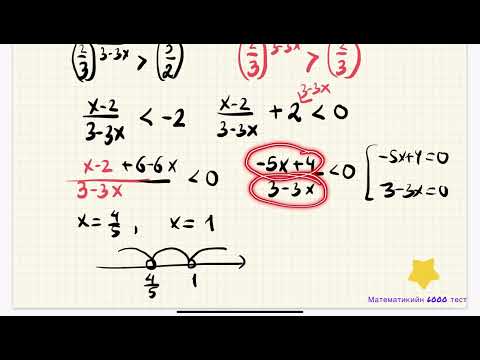 (2/3)^(3-3x) > (3/2) (2/3)^(3-3x) > (2/3)
(x-2)/(3-3x) < -2 (x-2)/(3-3x) + 2 < 0
3-3x
(x-2+6-6x)/(3-3x) < 0 (-5x+4)/(3-3x) < 0 { -5x+4=0
3-3x=0
x=4/5, x=1
4/5 1
Математикийн 6000 тест